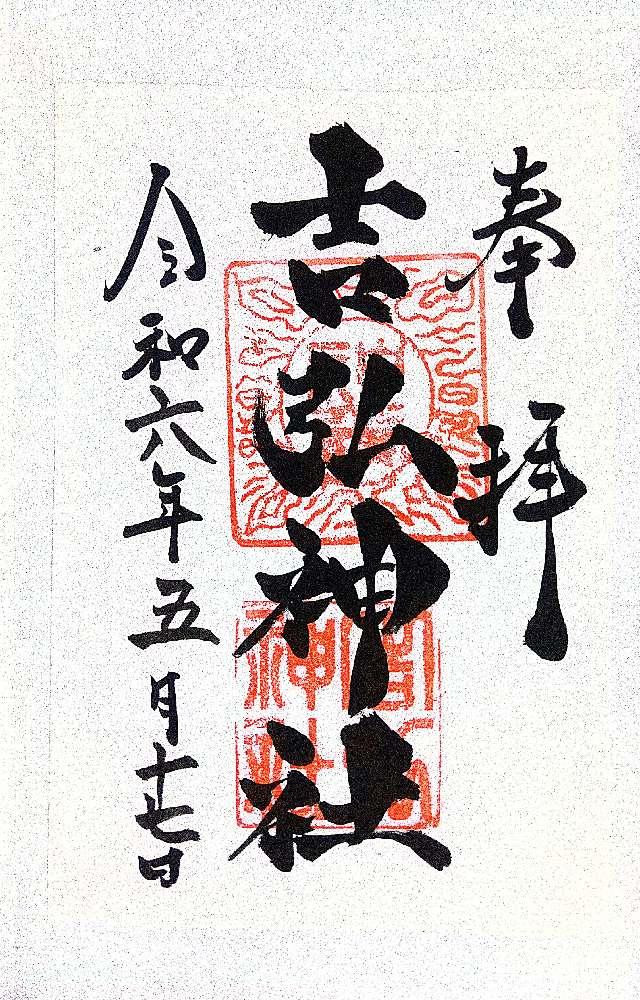 奉拝
吉弘神社
令和六年五月十七日